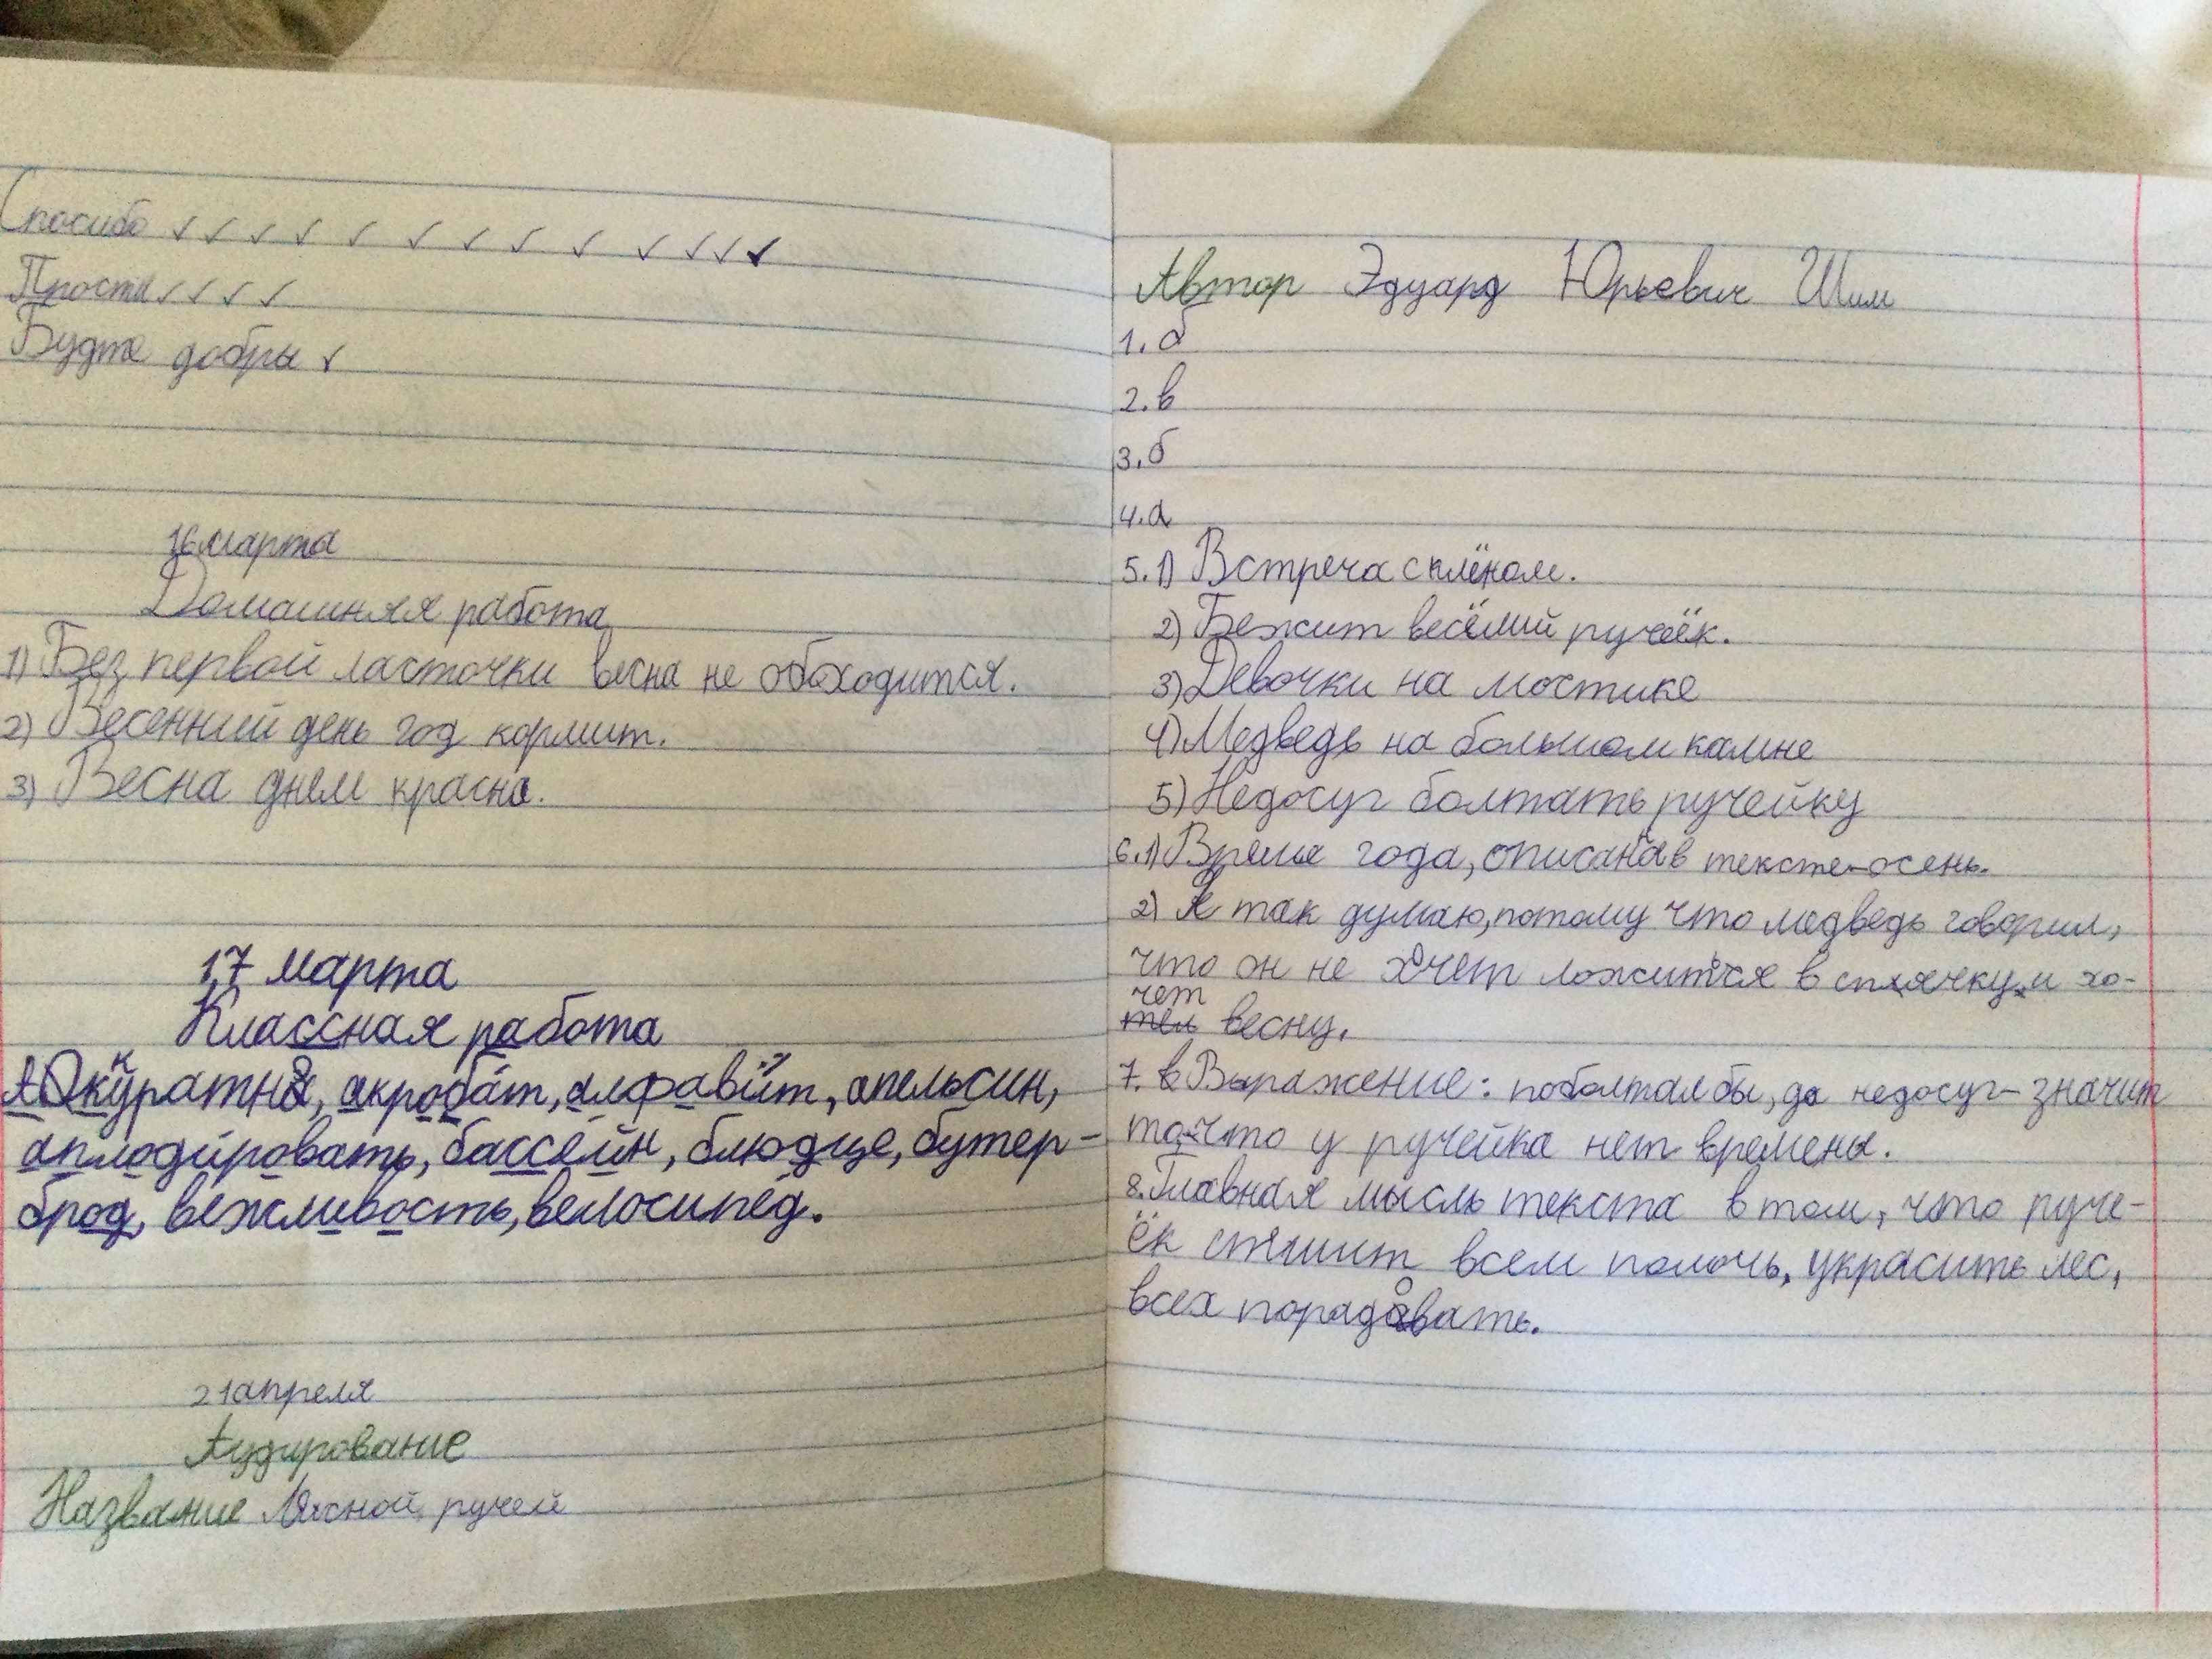 Спосибо ✓ ✓ ✓ ✓ ✓ ✓ ✓ ✓ ✓ ✓ ✓ ✓ ✓
Прости ✓ ✓ ✓ ✓
Будте добры ✓
16 марта
Домашняя работа
1) Без первой ласточки весна не обходится.
2) Весенний день год кормит.
3) Весна днем красна.
17 марта
Классная работа
акробат, алфавит, апельсин,
аплодировать, бассейн, блюдце, бутер-
брод, вежливость, велосипед.
21 апреля
Аудирование
Название ручей
Автор Эдуард Юрьевич Шим
1. б
2. в
3. б
4. а
5. 1) Встреча с клёном.
2) Бежит весёлий ручеёк.
3) Девочки на мостике
4) Медведь на большом камне
5) Недосуг болтать ручейку
6. 1) Время года, описана в тексте-осень.
2) Я так думаю, потому что медведь говорил,
что он не хочет ложится в спячку и хо-
чет
тел весну.
7. в Выражение: поболтал бы, да недосуг - значит
то, что у ручейка нет времены.
8. Главная мысль текста в том, что руче-
ёк спешит всем помочь, украсить лес,
всех порадовать.